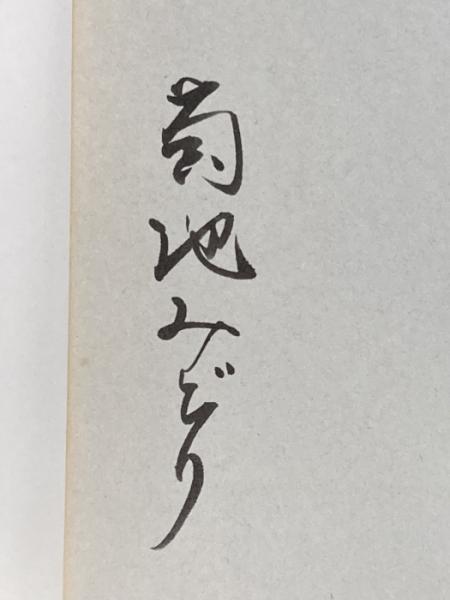 菊地みどり